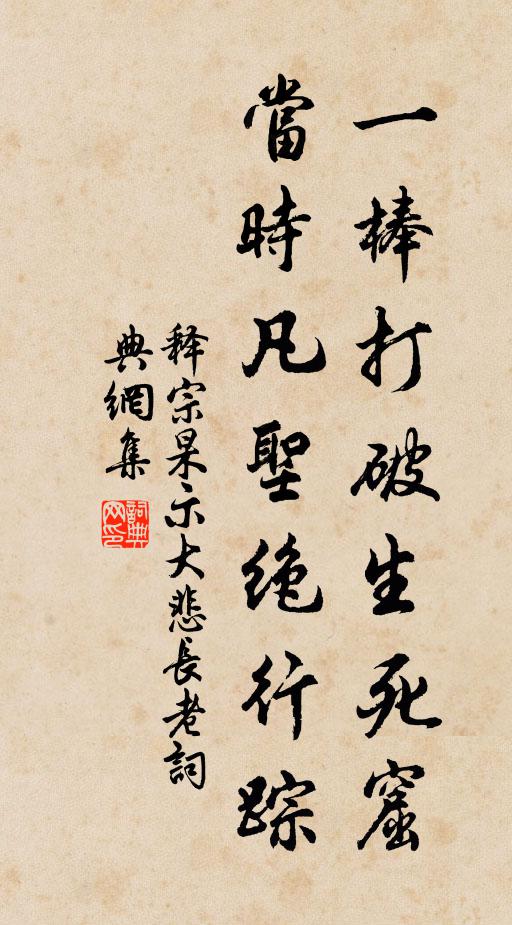 一棒打破生死窟
當時凡聖绝行踪
释宗杲示大悲長老詞
典網集
詞典
网印